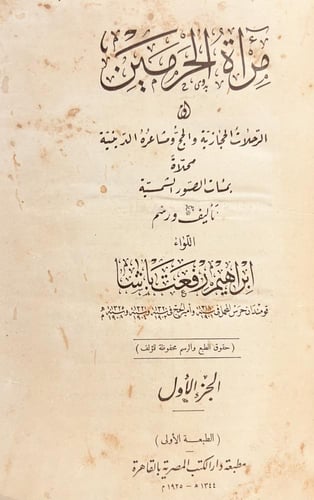 مرآة الحرمين
أو
الرحلات الحجازية والحج ومشاعره الدينية
محلاة
بمئات الصور الشمسية
تأليف ورسم
اللواء
إبراهيم رفعت باشا
قومندان حرس المحمل في سنة ١٣١٨ ١٩٠١ وأمير الحج في سنة ١٣٢٠ ١٩٠٣ وسنة ١٣٢١ ١٩٠٤ وسنة ١٣٢٥ ه ١٩٠٨ م
( حقوق الطبع والرسم محفوظة للمؤلف )
الجزء الأول
( الطبعة الأولى )
مطبعة دار الكتب المصرية بالقاهرة
١٣٤٤ ه - ١٩٢٥ م